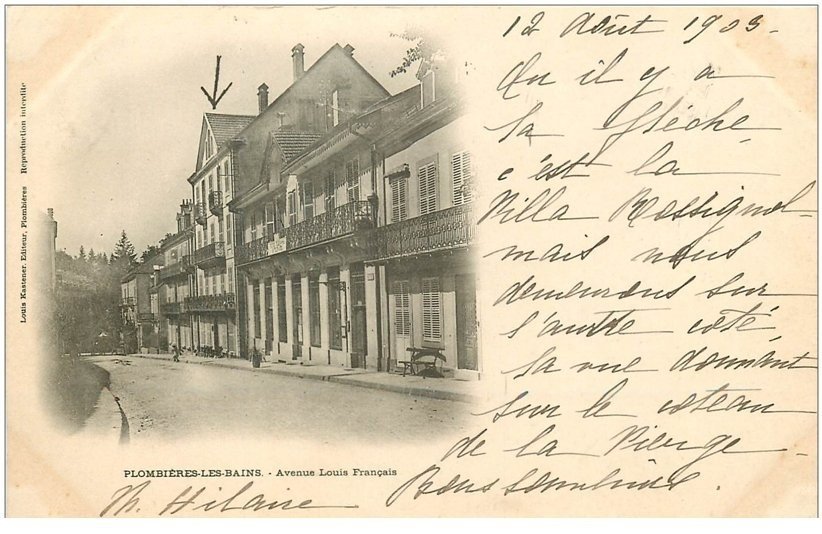 12 Août 1903.
Ou il y a
la flèche
c'est la
Villa Rossignol
mais nous
demeurons sur
l'autre coté,
la vue donnant
sur le coteau
de la Vierge.
Bons souvenirs.
M. Hilaire
PLOMBIÈRES-LES-BAINS. - Avenue Louis Français
Louis Kastener, Editeur, Plombières Reproduction interdite